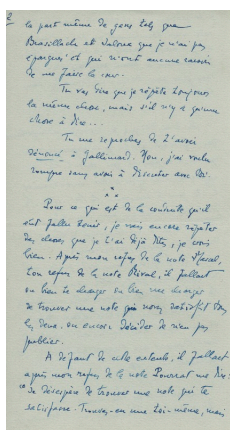 2
la part même de gens tels que
Brasillach et  que je n'ai pas
épargnés et qui n'ont aucune raison
de me faire la cour.
Tu vas dire que je répète toujours
la même chose, mais s'il n'y a qu'une
chose à dire...
Tu me reproches de t'avoir
dénoncé à Gallimard. Non, j'ai voulu
rompre sans avoir à discuter avec lui.
Pour ce qui est de la conduite qu'il
eût fallu tenir, je vais encore répéter
des choses que je t'ai déjà dites, je crois
bien. Après mon refus de la note
ton refus de la note  il fallait
ou bien  ou bien me charger
de trouver une note qui nous satisfît tous
les deux, ou encore décider de rien pas
publier.
A défaut de cette entente, il fallait
après mon refus de la note Pourrat me dire:
"Je désespère de trouver une note qui te
satisfasse. Trouves-en une toi-même, mais